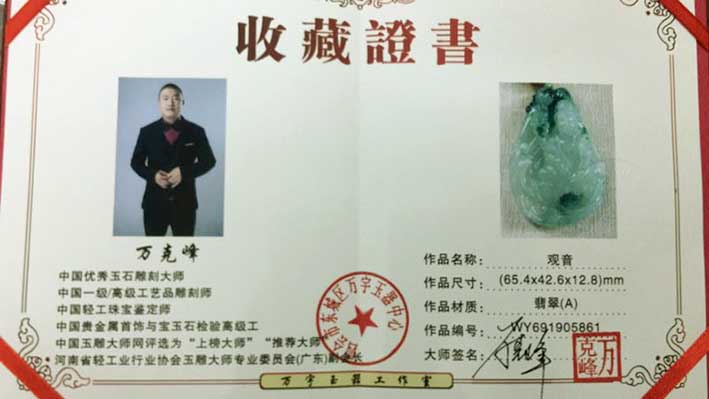 收藏證書
万克峰
中国优秀玉石雕刻大师
中国一级/高级工艺品雕刻师
中国轻工珠宝鉴定师
中国贵金属首饰与宝玉石检验高级工
中国玉雕大师网评选为“上榜大师”“推荐大师”
河南省轻工业行业协会玉雕大师专业委员会(广东)副会长
作品名称: 观音
作品尺寸: (65.4x42.6x12.8)mm
作品材质: 翡翠(A)
作品编号: WY691905861
大师签名: 万克峰
万克峰
市东城区万字玉器中心
万字玉器工作室